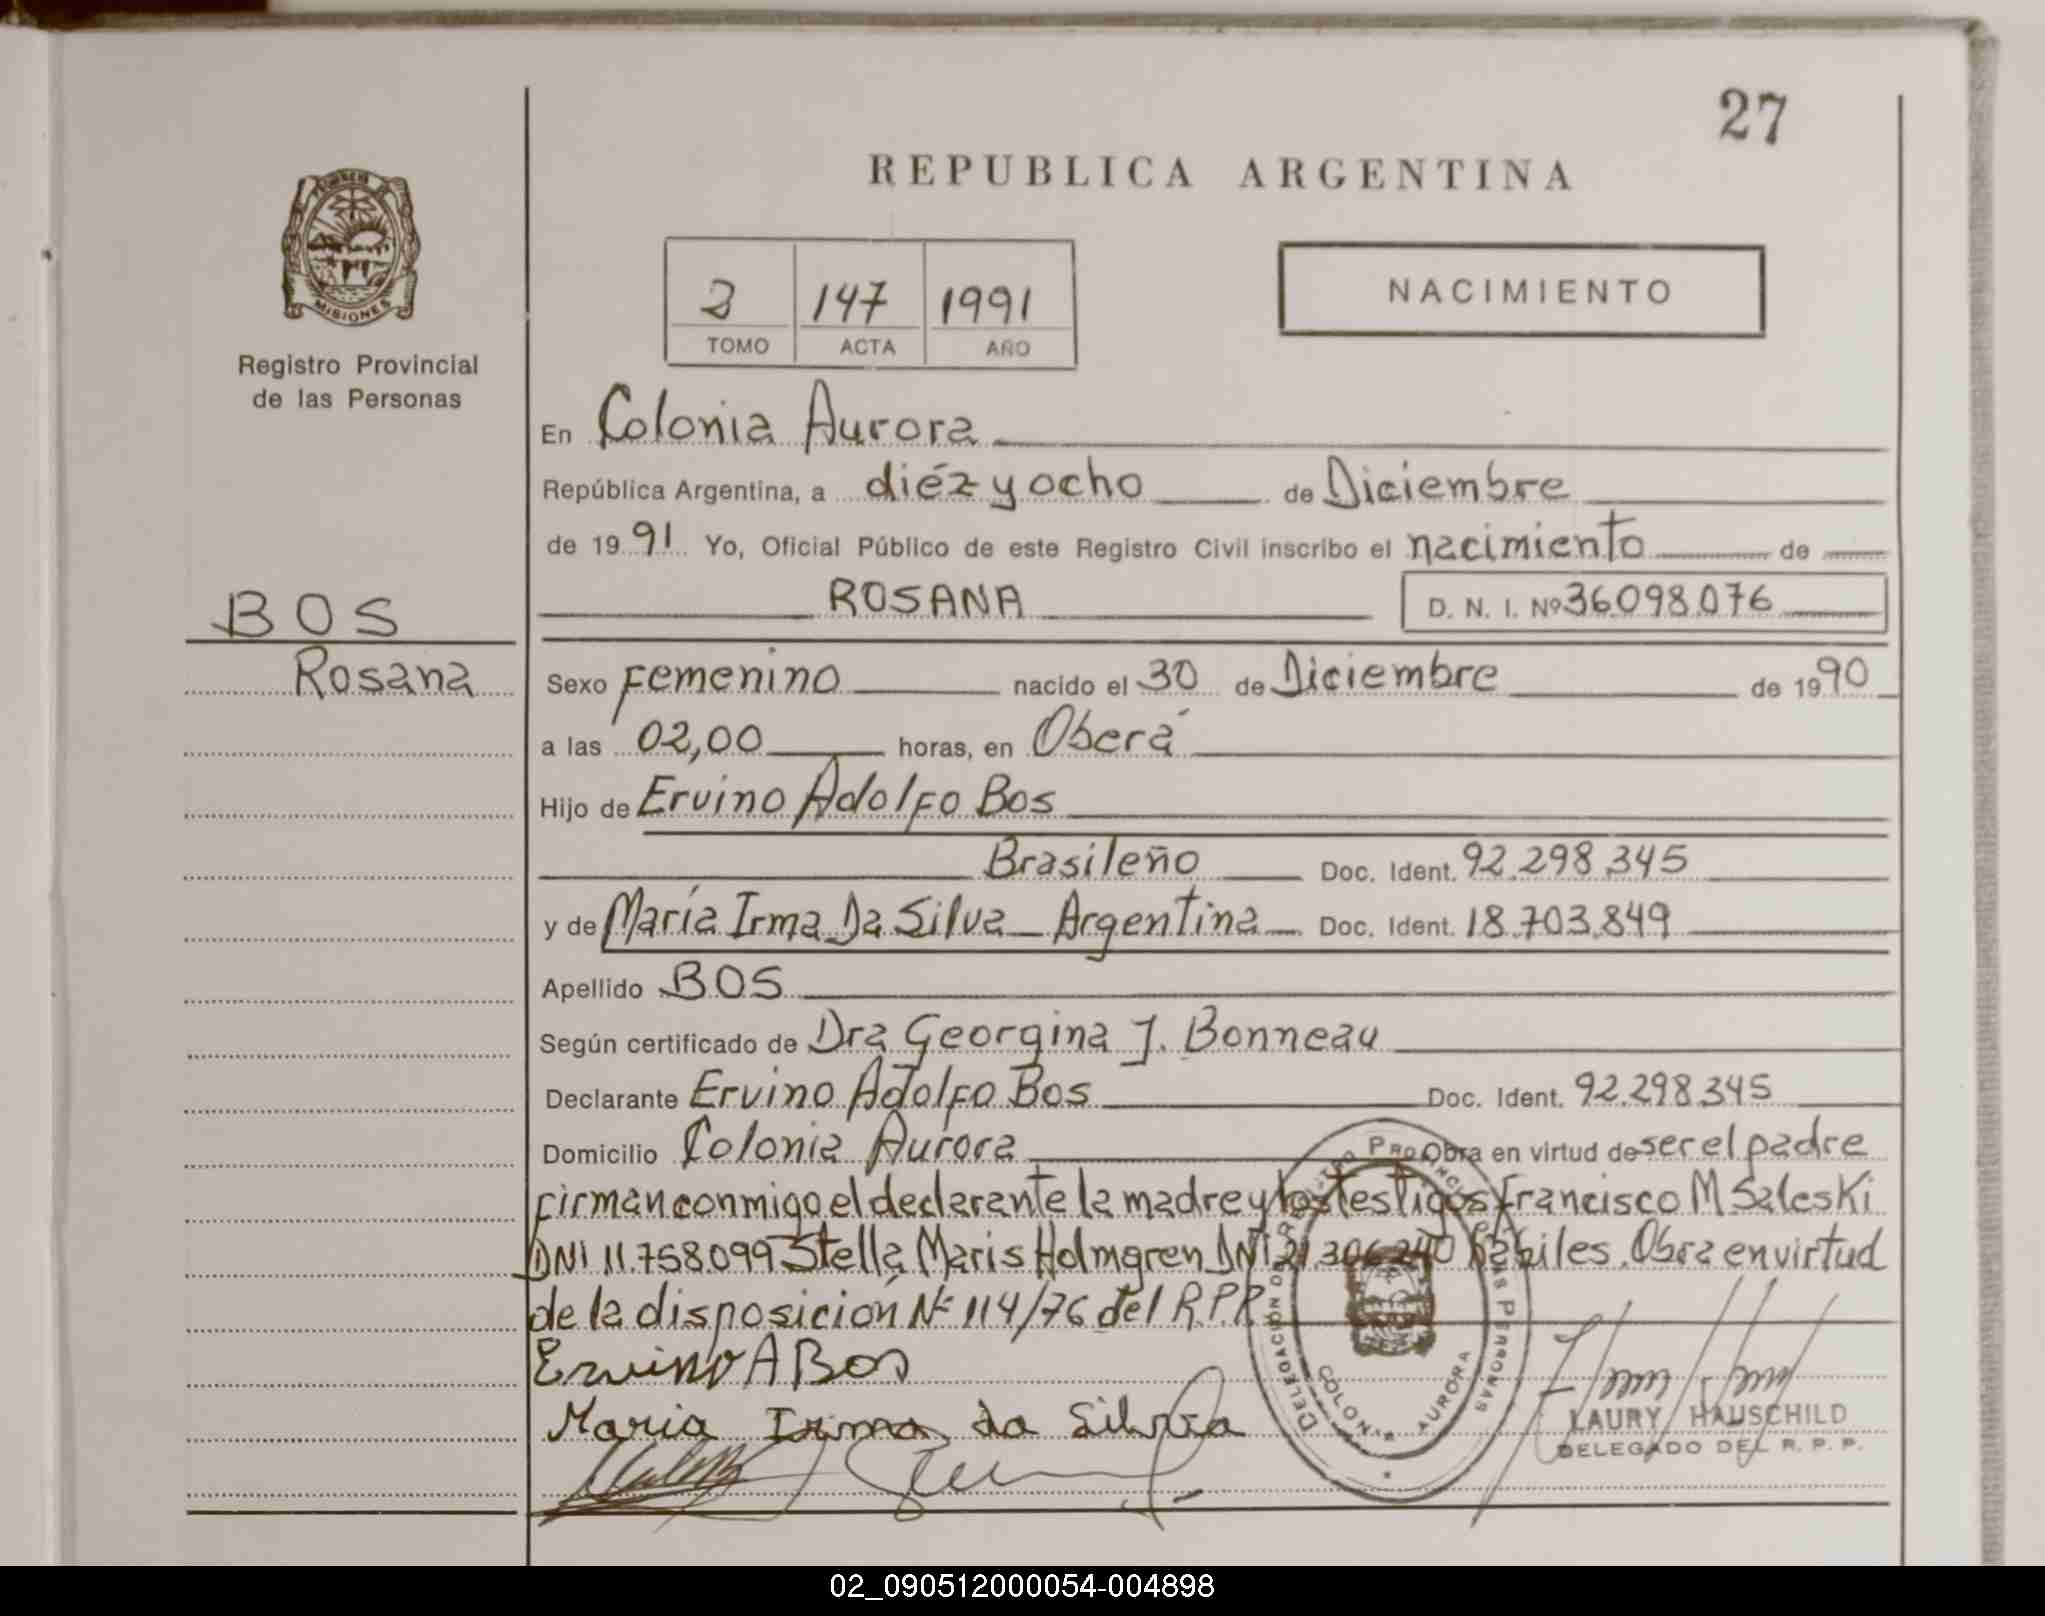 27
REPUBLICA ARGENTINA
MISIONES
Registro Provincial
de las Personas
2 147 1991
TOMO ACTA AÑO
NACIMIENTO
En Colonia Aurora
República Argentina, a diéz y ocho de Diciembre
de 1991 Yo, Oficial Público de este Registro Civil inscribo el nacimiento de
ROSANA D. N. I. Nº 36.098.076
BOS
Rosana
Sexo Femenino nacido el 30 de Diciembre de 1990
a las 02,00 horas, en Oberá
Hijo de Ervino Adolfo Bos
Brasileño Doc. Ident. 92.298.345
y de María Irma Da Silva - Argentina Doc. Ident. 18.703.849
Apellido BOS
Según certificado de Dra Georgina J. Bonneau
Declarante Ervino Adolfo Bos Doc. Ident. 92.298.345
Domicilio Colonia Aurora Obra en virtud de ser el padre
firman conmigo el declarante la madre y los testigos Francisco M Saleski
DNI 11.758.099 Stella Maris Holmgren DNI 21.306.240 hábiles. Obra en virtud
de la disposición Nº 114/76 del R.P.P.
Ervino A Bos
Maria Irma da Silva
DELEGACIÓN DE REGISTRO PROVINCIAL DE LAS PERSONAS
COLONIA AURORA
LAURY HAUSCHILD
DELEGADO DEL R. P. P.
02_090512000054-004898